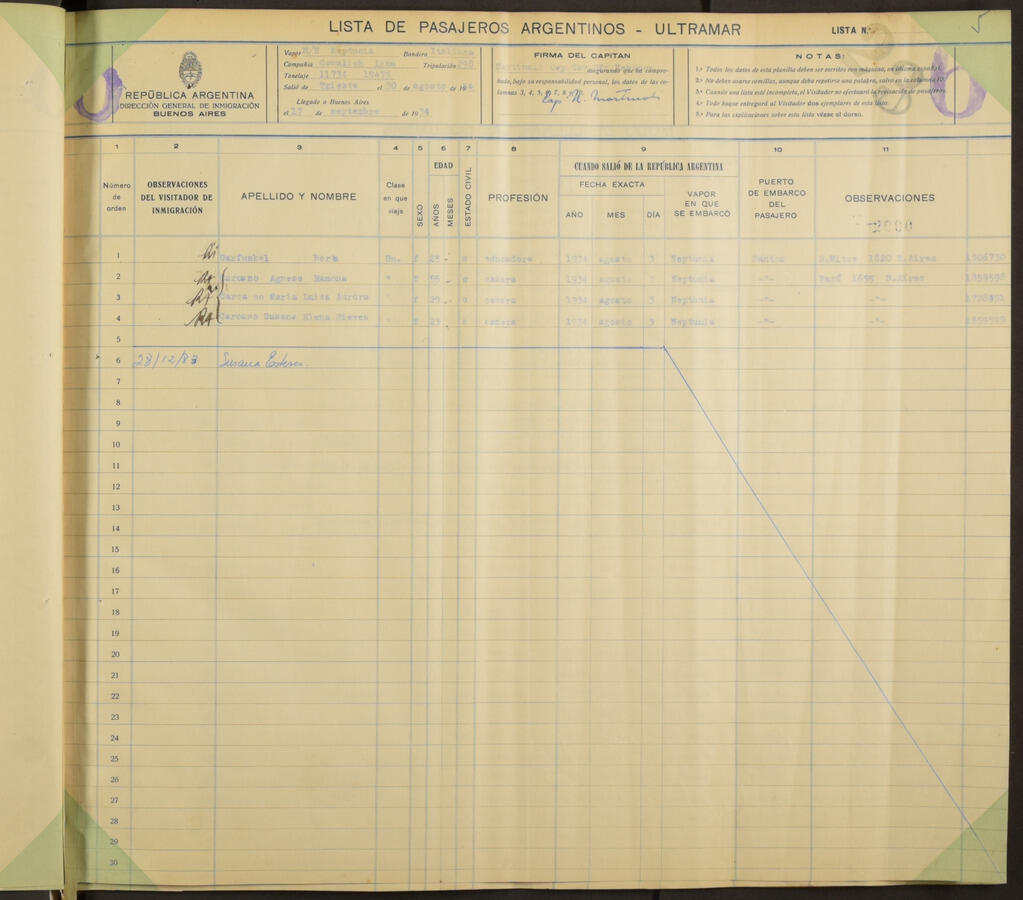 LISTA DE PASAJEROS ARGENTINOS - ULTRAMAR
LISTA N.º
5
REPÚBLICA ARGENTINA
DIRECCIÓN GENERAL DE INMIGRACIÓN
BUENOS AIRES
Vapor M/N Neptunia Bandera Italiana
Compañia Cosulich Tripulación
Tonelaje 11734 19475
Salió de Trieste el 30 de agosto de 19 34
Llegado a Buenos Aires
el 17 de septiembre de 1934
FIRMA DEL CAPITAN
asegurando que ha compro-
bado, bajo su responsabilidad personal, los datos de las co-
lumnas 3, 4, 5, 6, 7, 8, 9, 10.
Cap. N. Martinoli
NOTAS:
1.ª Todos los datos de esta planilla deben ser escritos con máquina, en idioma español.
2.ª No deben usarse comillas, aunque deba repetirse una palabra, salvo en la columna 10.
3.ª Cuando una lista esté incompleta, el Visitador no efectuará la revisación de pasajeros.
4.ª Todo buque entregará al Visitador dos ejemplares de esta lista.
5.ª Para las explicaciones sobre esta lista véase al dorso.
1 2 3 4 5 6 7 8 9 10 11
Número de orden
OBSERVACIONES DEL VISITADOR DE INMIGRACIÓN
APELLIDO Y NOMBRE
Clase en que viaja
SEXO
EDAD
AÑOS
MESES
ESTADO CIVIL
PROFESIÓN
CUANDO SALIÓ DE LA REPÚBLICA ARGENTINA
FECHA EXACTA
AÑO MES DÍA
VAPOR EN QUE SE EMBARCÓ
PUERTO DE EMBARCO DEL PASAJERO
OBSERVACIONES
1 Garfunkel Berta Un. f 23 - s educadora 1934 agosto 3 Neptunia Santos B.Mitre 1620 B.Aires 1306730
2 Carcano Agnese Ramona " f 55 - c casera 1934 agosto 3 Neptunia -"- Perú 1655 B.Aires
3 Carcano Maria Luisa Aurora " f 29 - s casera 1934 agosto 3 Neptunia -"-
4 Carcano Susana Elena Nieves " f 23 - s casera 1934 agosto 3 Neptunia -"-
5
6 23/12/83 Susana Esteves
7
8
9
10
11
12
13
14
15
16
17
18
19
20
21
22
23
24
25
26
27
28
29
30